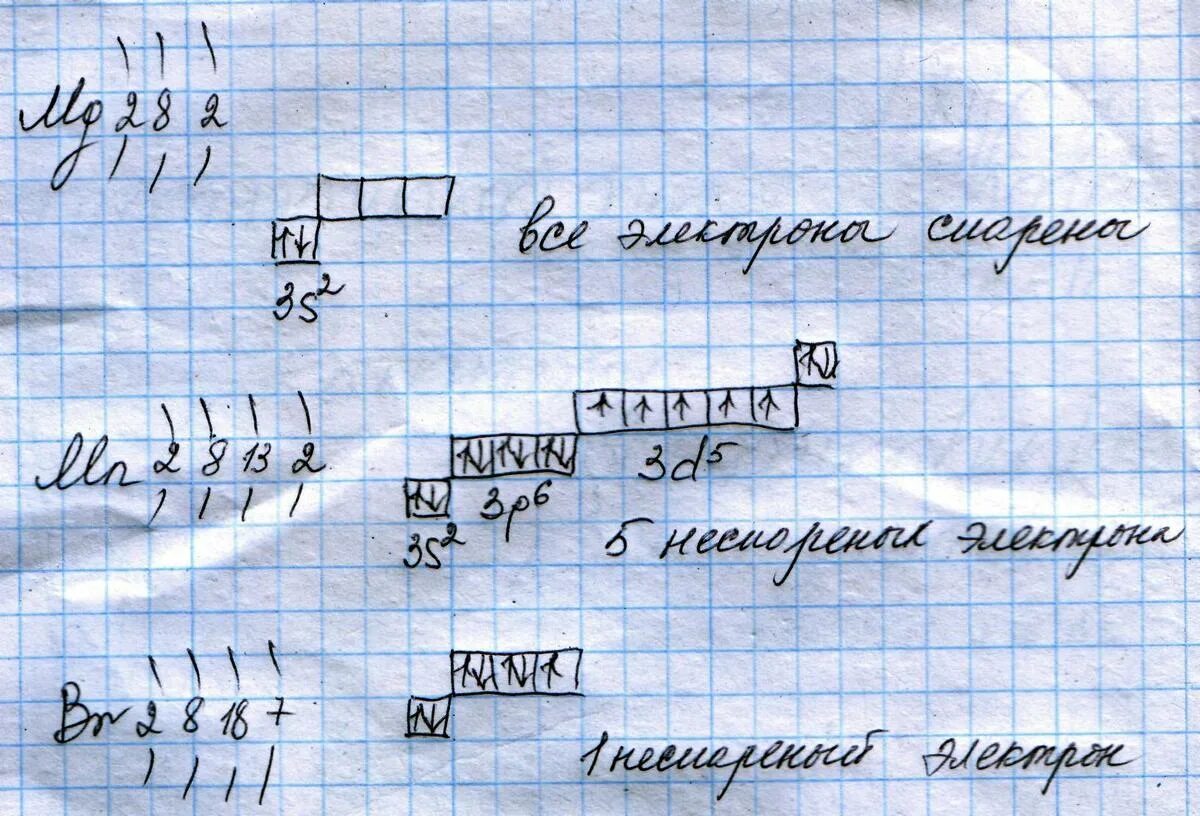 Mg 2 8 2
все электроны спарены
3s²
Mn 2 8 13 2
3s² 3p⁶ 3d⁵
5 неспареных электрона
Br 2 8 18 7
1 неспареный электрон